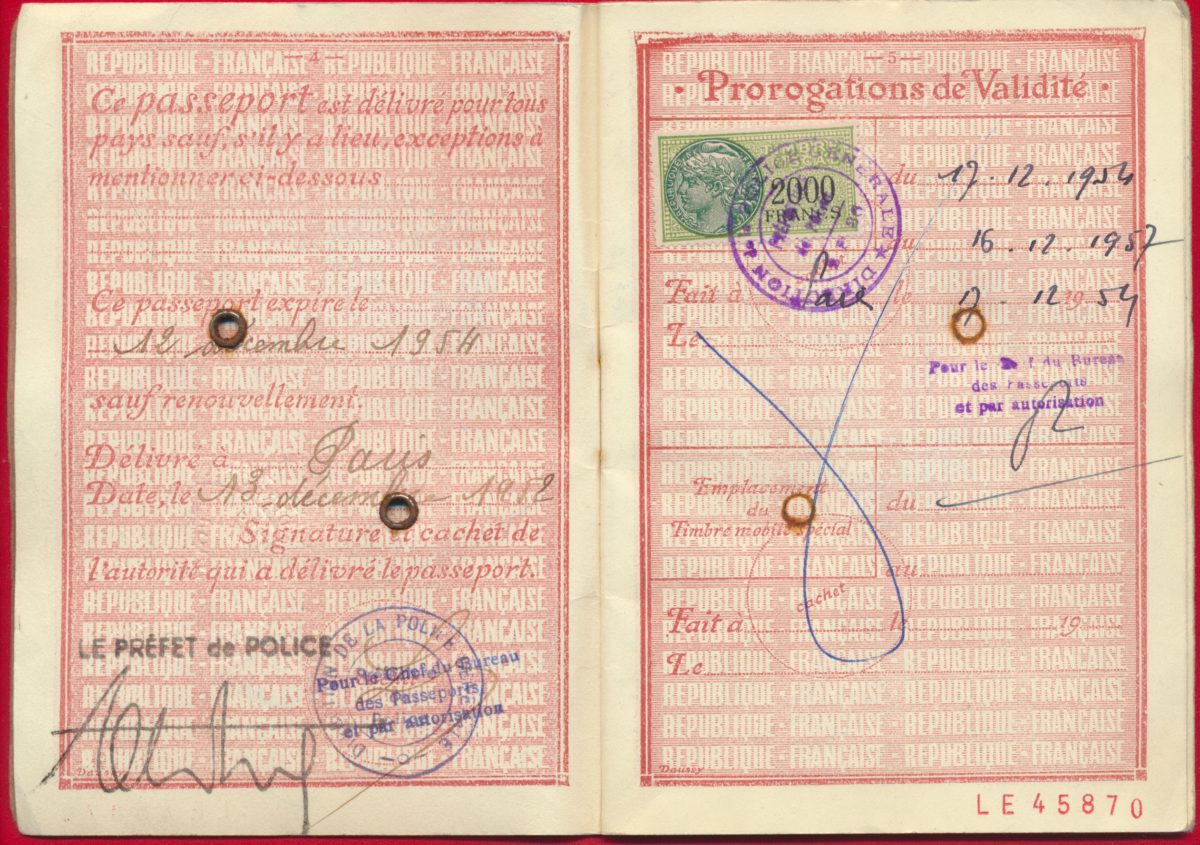 — 4 —
Ce passeport est délivré pour tous
pays sauf, s'il y a lieu, exceptions à
mentionner ci-dessous
Ce passeport expire le
12 décembre 1954
sauf renouvellement.
Délivré à Paris
Date, le 13 décembre 1952
Signature et cachet de
l'autorité qui a délivré le passeport.
LE PRÉFET de POLICE
DIRECTION DE LA POLICE GÉNÉRALE
Pour le Chef du Bureau
des Passeports
et par autorisation
Daussy
— 5 —
· Prorogations de Validité ·
2000
FRANCS
POLICE GÉNÉRALE ★ DIRECTION
du 17.12.1954
au 16.12.1957
Fait à Paris le 17.12 1954
Le
Pour le Chef du Bureau
des Passeports
et par autorisation
Emplacement
du
Timbre mobile spécial
du
au
cachet
Fait à le 19
Le
Daussy
LE45870
RÉPUBLIQUE - FRANÇAISE